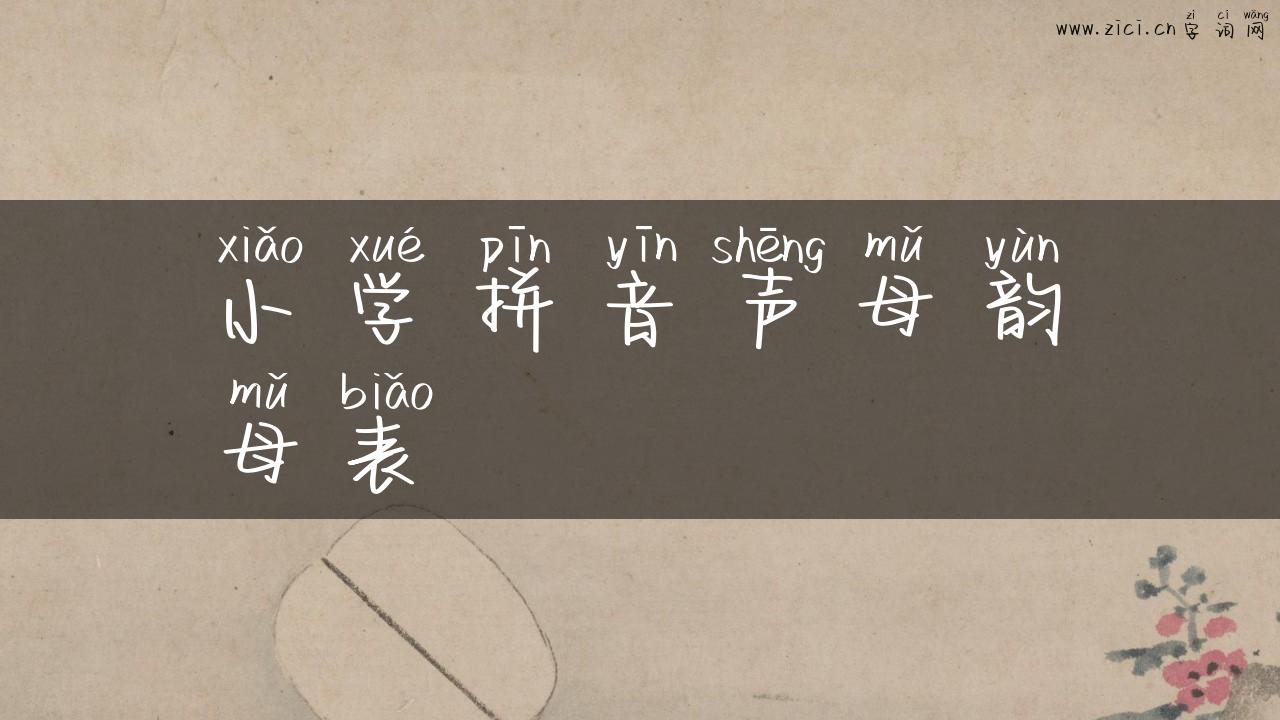 zì cí wǎng
www.zici.cn 字词网
xiǎo xué pīn yīn shēng mǔ yùn
小学拼音声母韵
mǔ biǎo
母表